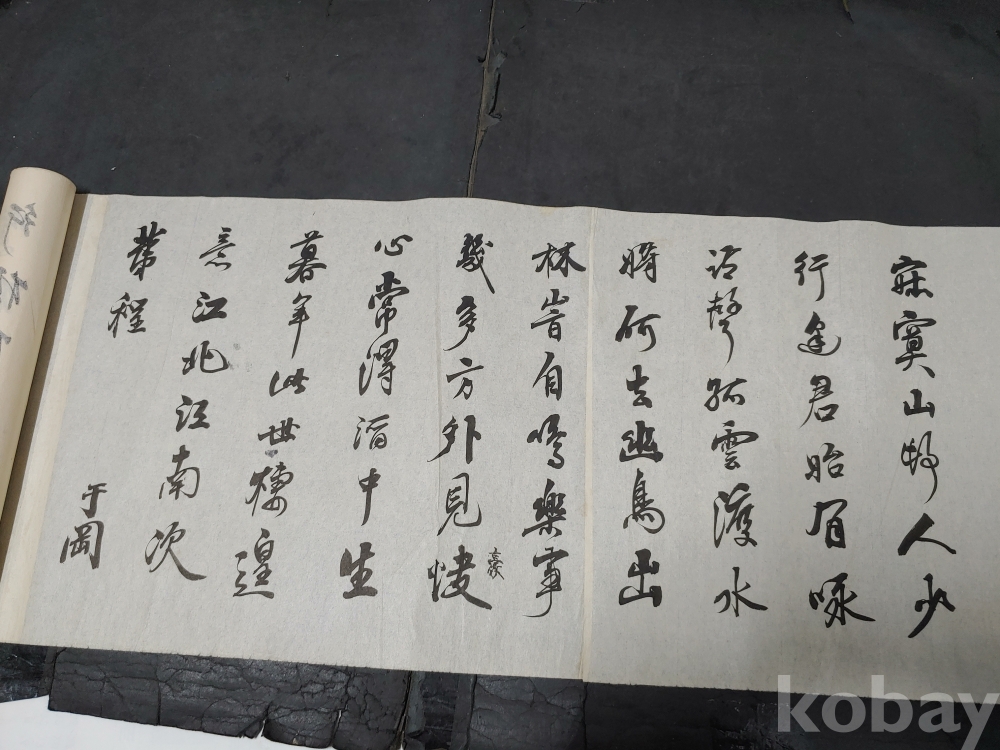 寂寞山人少
行逢君有咏
詩聲孤雲渡水
時何去幽鳥出
林皆自鳴樂事
幾多方外見
豪
心常得酒中生
暮年此世棲遑
意江北江南次
第程
于岡
kobay